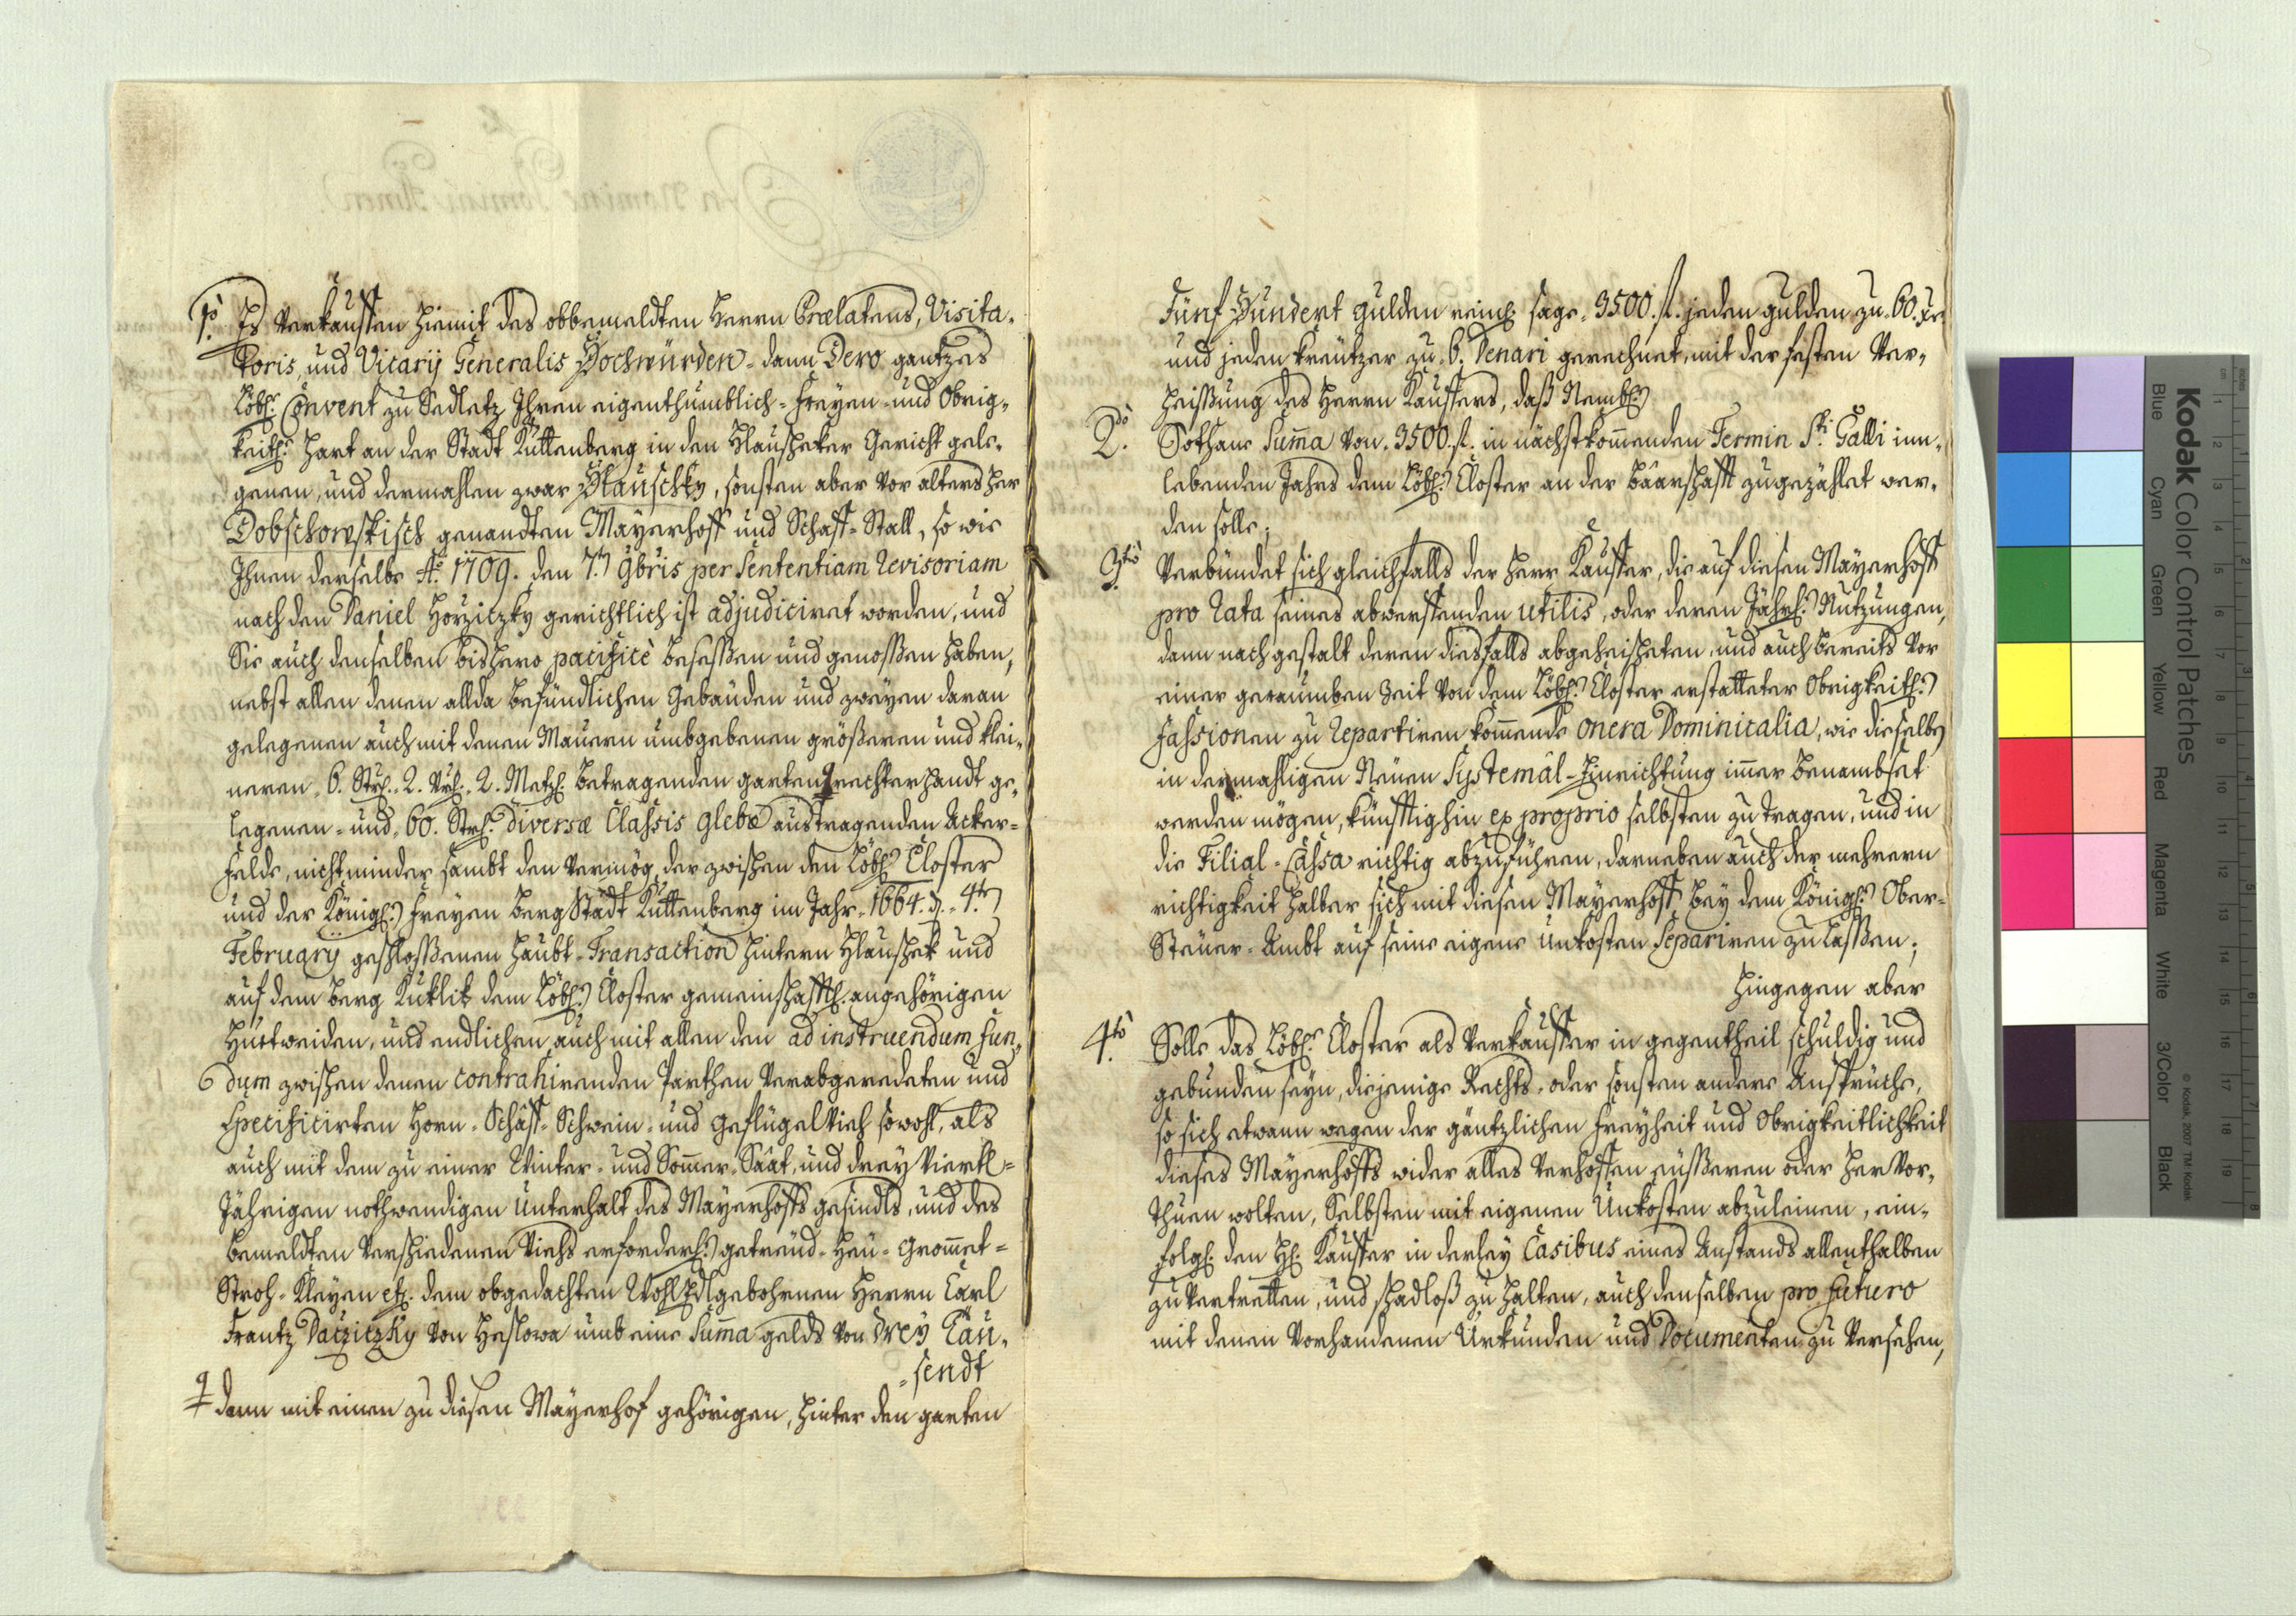 1mo Es verkauffen hiemit des obbemeldten Herrn Prælatens, Visita-
toris, und Vicarij Generalis Hochwürden- dann Dero gantzes
Löbl: Convent zu Sedletz Ihren eigenthumblich- freyen- und Obrig-
keitl: hart an der Stadt Kuttenberg in den Hlausheker Gericht gele-
genen, und dermahlen zwar Hlauschky, sonsten aber vor alters her
Dobschowskisch genandten Mayerhoff und Schaff-Stall, so wie
Ihnen derselbe Ao 1709. den 7ten 9bris per Sententiam Revisoriam
nach den Daniel Horziczky gerichtlich ist adjudiciret worden, und
Sie auch denselben bishero pacificè besessen und genossen haben,
nebst allen denen allda befündlichen Gebäuden und zweyen daran
gelegenen auch mit denen Mauern umbgebenen größeren und klei-
neren, 6. Str. 2. Vrl. 2. Metzl. betragenden garten rechter handt ge-
legenen- und 60. Str: diversæ Classis glebæ austragenden Acker-
felde, nicht minder sambt den vermög der zwischen den Löbl: Closter
und der Königl: freyen Berg Stadt Kuttenberg im Jahr 1664. d. 4ten
February geschlossenen Haubt-Transaction hintern Hlaushek und
auf dem Berg Kuklik dem Löbl: Closter gemeinschafftl. angehörigen
Hüttweiden, und endlichen auch mit allen den ad instruendum fun-
dum zwischen denen contrahirenden Parthen verabgeredeten und
specificirten Horn- Schaff- Schwein- und geflügel Vieh sowohl, als
auch mit dem zu einer Winter- und Sommer-Saat, und drey Viertl-
Jährigen nothwendigen Unterhalt des Mayerhoffs gesindls, und des
bemeldten verschiedenen Viehs erforderl: getreyd- Heu- Grommet-
Stroh- Kleyen etc. dem obgedachten WohlEdlgebohrnen Herrn Carl
Frantz Dacziczky von Heslowa umb eine Summa gelds von Drey Tau-
-sendt
dann mit einen zu diesen Mayerhof gehörigen, hinter den garten
Fünf Hundert Gulden reinl. sage 3500. fl. jeden Gulden zu 60. Xr.
und jeden Kreutzer zu 6. Denari gerechnet, mit der festen Ver-
heissung des Herrn Kauffers, daß Nembl:
2do. Sothane Summa von 3500. fl. in nächstkommenden Termin Sti Galli inn-
lebenden Jahrs dem Löbl: Closter an der Baarschafft zugezählet wer-
den solle;
3tio. Verbündet sich gleichfalls der Herr Kauffer, die auf diesen Mayerhoff
pro Rata seines abwerffenden utilis, oder deren Jährl: Nutzungen,
dann nach gestalt deren diesfalls abgeheischeten, und auch bereits vor
einer geraumben Zeit von dem Löbl: Closter erstatteter Obrigkeitl:
Fassionen zu repartiren kommende onera Dominicalia, wie dieselbe
in dermahligen Neuen Systemal-Einrichtung immer benambset
werden mögen, künfftighin ex proprio selbsten zu tragen, und in
die Filial-Cassa richtig abzuführen, darneben auch der mehrern
richtigkeit halber sich mit diesen Mayerhoff bey dem Königl: Ober-
Steuer-Ambt auf seine eigene Unkosten Separiren zu lassen;
Hingegen aber
4to. Solle das Löbl: Closter als Verkauffer in gegentheil schuldig und
gebunden seyn, diejenige Rechts- oder sonsten andere Ansprüche,
so sich etwann wegen der gäntzlichen Freyheit und Obrigkeitlichkeit
dieses Mayerhoffs wider alles Verhoffen eüsseren oder hervor-
thuen wolten, Selbsten mit eigenen Unkosten abzuleinen, ein-
folgl: den H: Kauffer in derley Casibus eines Anstands allenthalben
zu vertretten, und schadloß zu halten, auch denselben pro futuro
mit denen vorhandenen Urkunden und Documenten zu versehen,
Kodak Color Control Patches
Blue Cyan Green Yellow Red Magenta White 3/Color Black
© Kodak, 2007 TM: Kodak